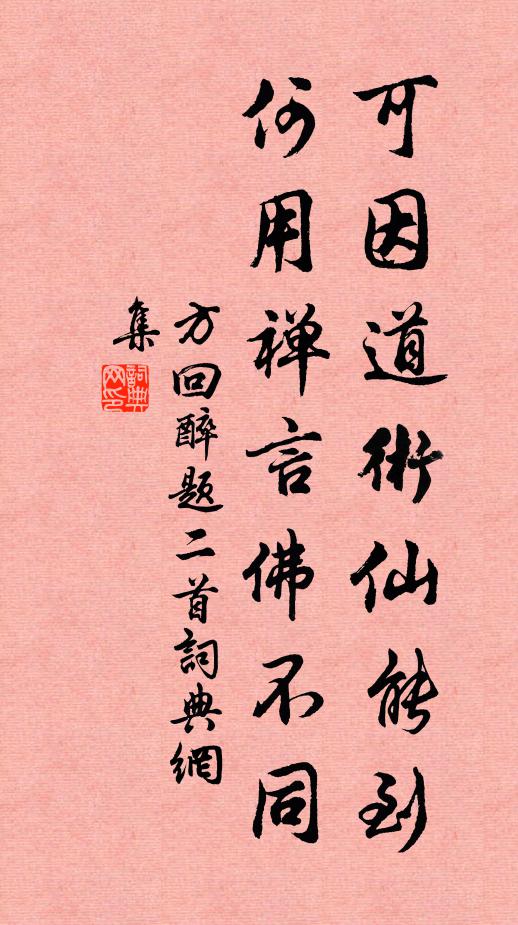 可因道術仙能到
何用禅言佛不同
方回醉题二首詞典網
集
詞典
网印